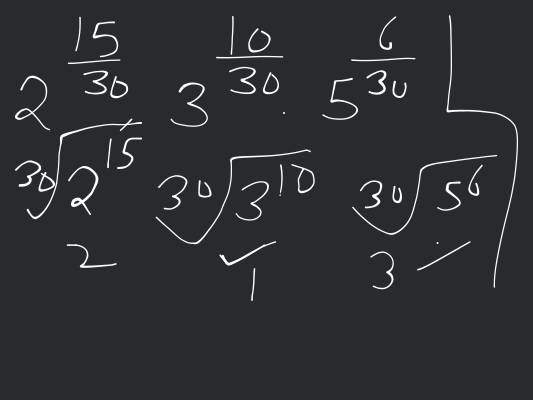 2^{15/30} 3^{10/30} . 5^{6/30}
\sqrt[30]{2^{15}} \sqrt[30]{3^{10}} \sqrt[30]{5^{6}}
2 1 3